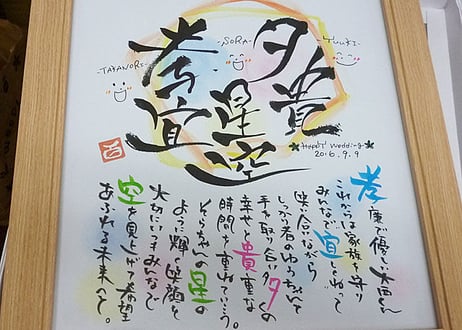 -TAKANORI-
-SORA-
-YUUKI-
夕貴
星空
孝宜
Happy Wedding
2016.9.9
孝 で優しい くん
これからは家族を守り
みんなで宜しくねって
笑い合いながら
しっかり者のゆうちゃんと
手を取り合い多くの
幸せと貴重な
時間を重ねていこう。
そらちゃんの星の
ように輝く笑顔を
大切にいつもみんなで
空を見上げて希望
あふれる未来へと。